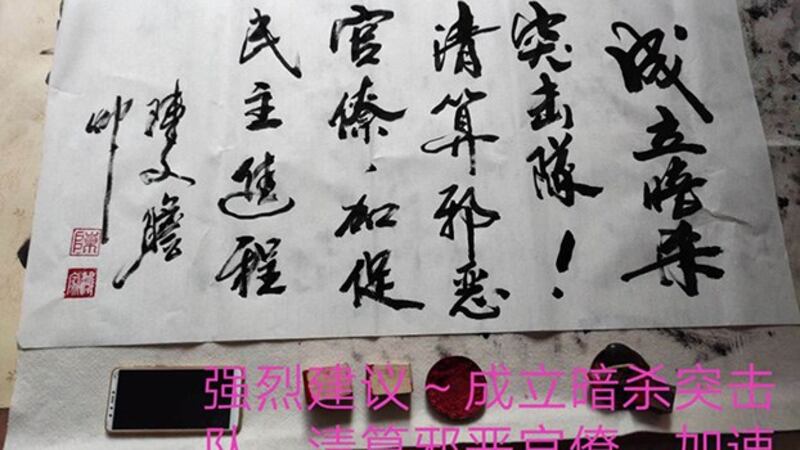 成立暗杀
突击隊！
清算邪恶
官僚，加促
民主進程
陳文瞻
叩
强烈建议～成立暗杀突击
队 清算邪恶官僚 加速